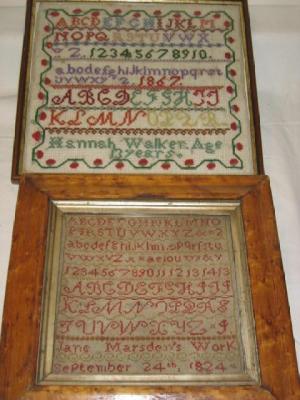 ABCDEFGHIJKLM
NOPQRSTUVWX
YZ. 12345678910.
abcdefghijklmnopqrst
uvwxyz 1867.
ABCDEFGHIJ
KLMNOPQR
Hannah Walker. Age
12 years.
ABCDEFGHIJKLMNO
PQRSTUVWXYZ&
abcdefghijklmnopqrstu
vwxyz aeiouvy
1234567891011121314
ABCDEFGHIJ
KLMNOPQRS
TUVWXYZ
Jane Marsden's Work
September 24th. 1824